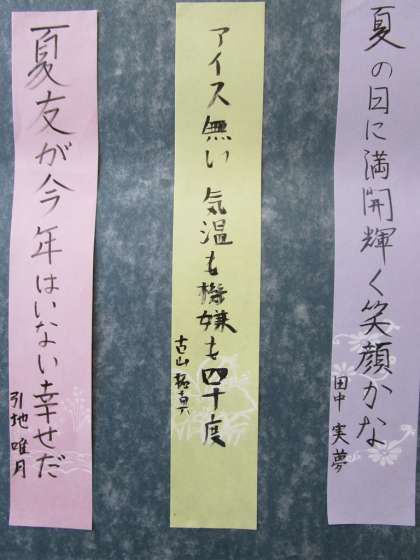 夏の日に満開輝く笑顔かな
田中実夢
アイス無い 気温も機嫌も四十度
古山拓真
夏友が今年はいない幸せだ
引地唯月